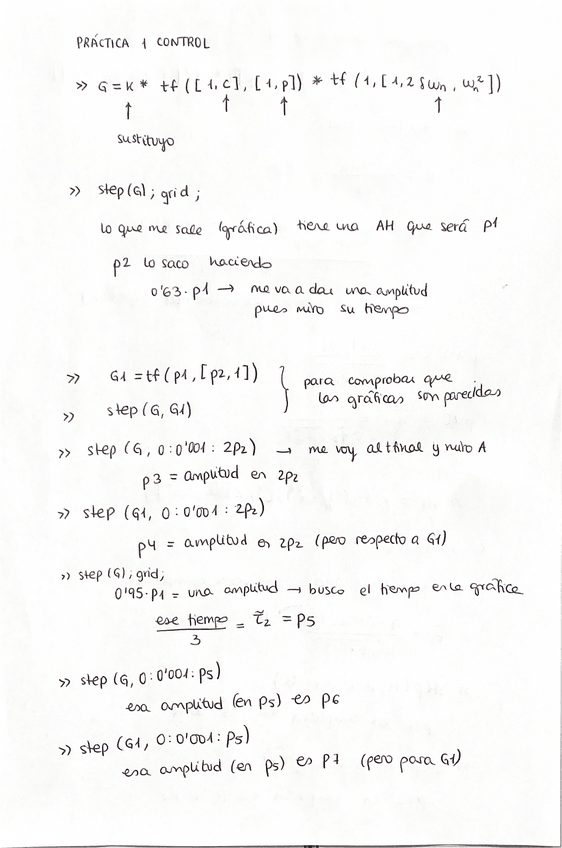 PRÁCTICA 1 CONTROL
>> G = K * tf ([1, c], [1, p]) * tf (1, [1, 2 δ ωn, ωn²])
↑ ↑ ↑ ↑
sustituyo
>> step(G); grid;
lo que me sale (gráfica) tiene una AH que será p1
p2 lo saco haciendo
0'63·p1 → me va a dar una amplitud
pues miro su tiempo
>> G1 = tf(p1, [p2, 1]) } para comprobar que
>> step(G, G1) las gráficas son parecidas
>> step (G, 0:0'001:2p2) → me voy al final y miro A
p3 = amplitud en 2p2
>> step (G1, 0:0'001:2p2)
p4 = amplitud en 2p2 (pero respecto a G1)
>> step(G); grid;
0'95·p1 = una amplitud → busco el tiempo en la gráfica
ese tiempo
/ 3 = τ̃2 = p5
>> step (G, 0:0'001:p5)
esa amplitud (en p5) es p6
>> step (G1, 0:0'001:p5)
esa amplitud (en p5) es p7 (pero para G1)